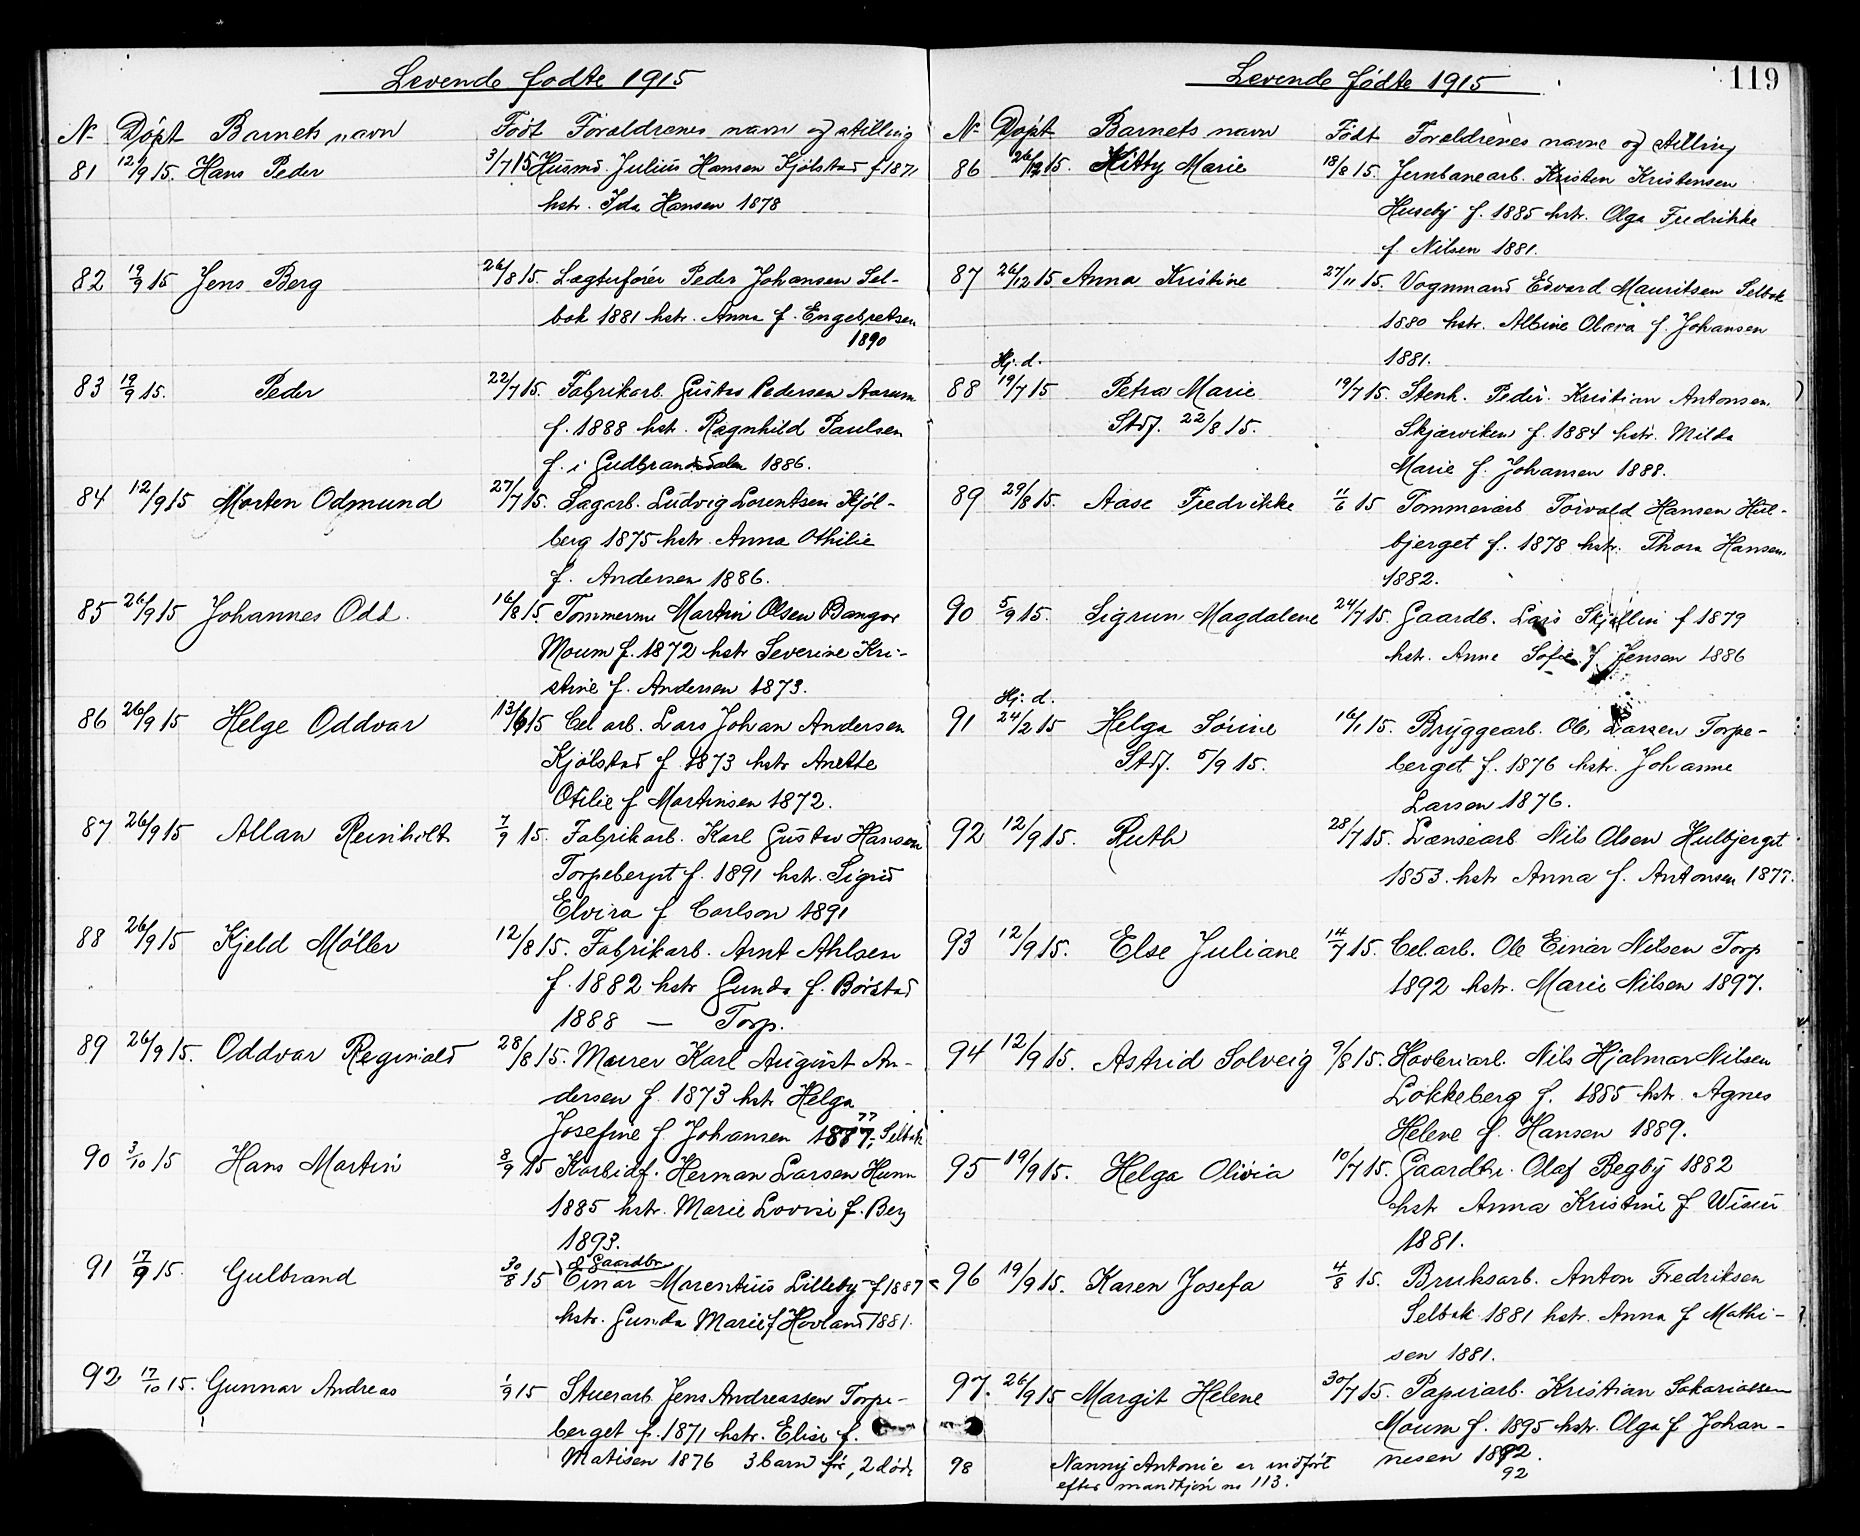 Levende fødte 1915
No Döpt Barnets navn Födt Foraldrenes navn og stilling
81 12/9 15. Hans Peder 3/7 15 Husmd. Julius Hansen Kjölstad f 1871
hstr. Ida Hansen 1878
82 19/9 15 Jens Berg 26/8 15. Lægterforer Peder Johansen Sel-
bak 1881 hstr. Anna f. Engebretsen
1890
83 19/9 15. Peder 22/7 15. Fabrikarb. Gustav Pedersen Aarum
f. 1888 hst. Ragnhild Paulsen
f. i Gudbrandsdalen 1886.
84 12/9 15 Morten Odmund 27/7 15. Sagarb. Ludvig Lorentsen Kjöl-
berg 1875 hstr. Anna Othilie
f. Andersen 1886.
85 26/9 15 Johannes Odd. 16/8 15. Tommerm Martin Olsen Bangor
Moum f. 1872 hstr Severine Kri-
stine f. Andersen 1873.
86 26/9 15 Helge Oddvar 13/6 15 Cel arb. Lars Johan Andersen
Kjölstad f. 1873 hstr Anette
Otilie f Martinsen 1872.
87 26/9 15 Allan Reinholt 7/9 15. Fabrikarb. Karl Gustav Hansen
Torpeberget f. 1891 hstr. Sigrid
Elvira f Carlson 1891
88 26/9 15 Kjeld Möller 12/8 15. Fabrikarb. Arnt Ahlsen
f. 1882 hstr Gunda f. Börstad
1888 — Torp.
89 26/9 15. Oddvar Reginald 28/8 15. Murer Karl August An-
dersen f. 1873 hstr Helga
Josefine f Johansen 1877; 77 Selbak
90 3/10 15 Hans Martin 8/9 15 Karbidf. Herman Larsen Hunn
1885 hstr. Marie Lovise f. Berg
1893.
d Gaardbr
91 17/9 15. Gulbrand 30/8 15 Einar Marentius Lilleby f 1887
hstr. Gunda Marie f Hovland 1881.
92 17/10 15. Gunnar Andreas 1/9 15 Stuerarb. Jens Andreassen Torpe-
berget f. 1871 hstr. Elise f.
Matisen 1876 3 barn för, 2 död.
Levende fødte 1915
119
No Döpt Barnets navn Födt Foraldrenes navne og stilling
86 26/12 15. Kitty Marie 18/8 15. Jernbanearb. Kristen Kristensen
Huseby f. 1885 hstr. Olga Fredrikke
f Nilsen 1881.
87 26/12 15 Anna Kristine 27/11 15. Vognmand Edvard Mauritsen Selbak
1880 hstr. Albine Olava f. Johansen
1881.
Hj. d.
88 19/7 15 Petra Marie 19/7 15. Stenh. Peder Kristian Antonsen
Stdf. 22/8 15. Skjærviken f. 1884 hstr. Milda
Marie f. Johansen 1888.
89 29/8 15. Aase Fredrikke 11/6 15 Tommerarb Torvald Hansen Hul-
bjerget f. 1878 hstr. Thora Hansen
1882.
90 5/9 15. Sigrun Magdalene 24/7 15. Gaardb. Lars Skjellin f 1879
hstr. Anne Sofie f Jensen 1886
Hj. d.
91 24/2 15 Helga Sörine 16/1 15. Bryggearb. Ole Larsen Torpe-
Stdf. 5/9 15. berget f. 1876 hstr. Johanne
Larsen 1876.
92 12/9 15. Ruth 28/7 15. Lænsearb Nils Olsen Hulbjerget
1853. hstr Anna f. Antonsen 1877.
93 12/9 15. Else Juliane 14/7 15. Cel. arb. Ole Einar Nilsen Torp
1892 hstr. Marie Nilsen 1897.
94 12/9 15. Astrid Solveig 9/8 15. Hövleriarb. Nils Hjalmar Nilsen
Lökkeberg f. 1885 hstr. Agnes
Helene f. Hansen 1889.
95 19/9 15. Helga Olivia 10/7 15. Gaardbr. Olaf Begby 1882
hstr Anna Kristine f
1881.
96 19/9 15. Karen Josefa 4/8 15. Bruksarb. Anton Fredriksen
Selbak 1881 hstr. Anna f Mathi-
sen 1881.
97. 26/9 15 Margit Helene 30/7 15. Papirarb. Kristian Sakariassen
Moum f. 1895 hstr. Olga f Johan-
nesen 1892.
92
98 Nanny Antonie er indført
efter mandkjön no 113.